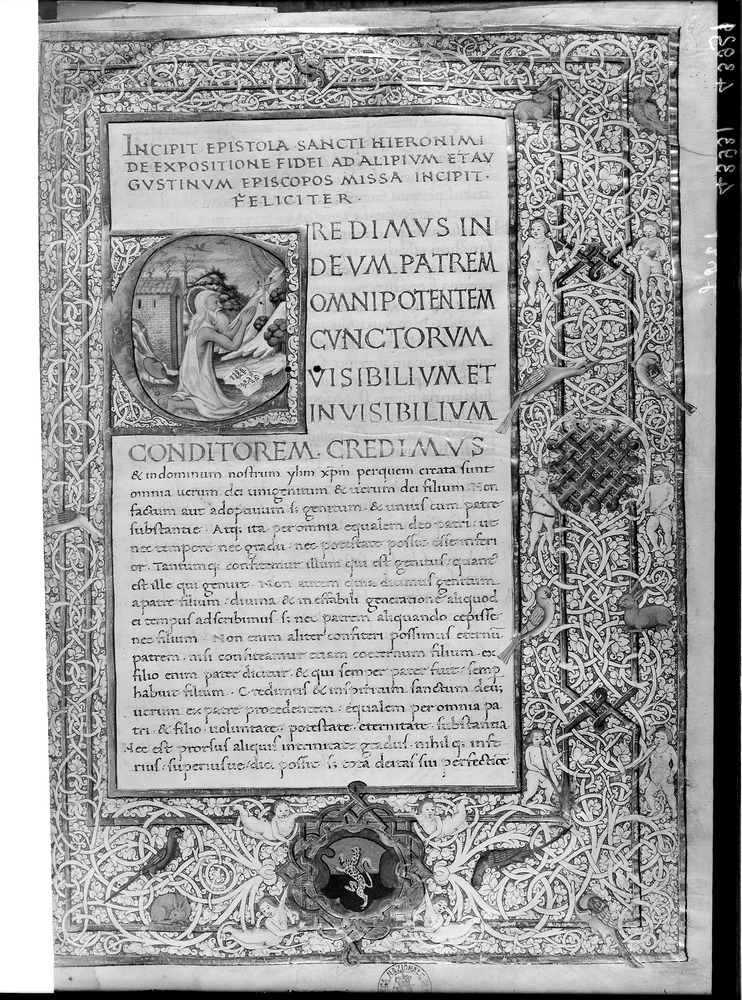 INCIPIT EPISTOLA SANCTI HIERONIMI
DE EXPOSITIONE FIDEI AD ALIPIVM ET AV
GVSTINVM EPISCOPOS MISSA INCIPIT ·
FELICITER ·
CREDIMVS IN
DEVM PATREM
OMNIPOTENTEM
CVNCTORVM
VISIBILIVM ET
INVISIBILIVM
CONDITOREM. CREDIMVS
& in dominum nostrum yhm xpm per quem creata sunt
omnia uerum dei unigenitum & uerum dei filium. Non
factum aut adoptiuum s; genitum & unius cum patre
substantie. Atq; ita per omnia equalem deo patri · ut
nec tempore nec gradu · nec potestate possit esse inferi
or. Tantumq; confitemur illum qui est genitus · quantus
est ille qui genuit. Non autem quia dicimus genitum
a patre filium · diuina & ineffabili generatione aliquod
ei tempus adscribimus s; nec patrem aliquando cepisse
nec filium · Non enim aliter confiteri possimus eternum
patrem · nisi confiteamur etiam coeternum filium · ex
filio enim pater dicitur · & qui semper pater fuit · semp
habuit filium · Credimus & in spiritum sanctum deum
uerum ex patre procedentem · equalem per omnia pa
tri · & filio · uoluntate · potestate · eternitate · substantia
Nec est prorsus aliquis in trinitate gradus · nihil q; infe
rius · superiusue dici possit · s; tota deitas sui perfectioe
43931 43929